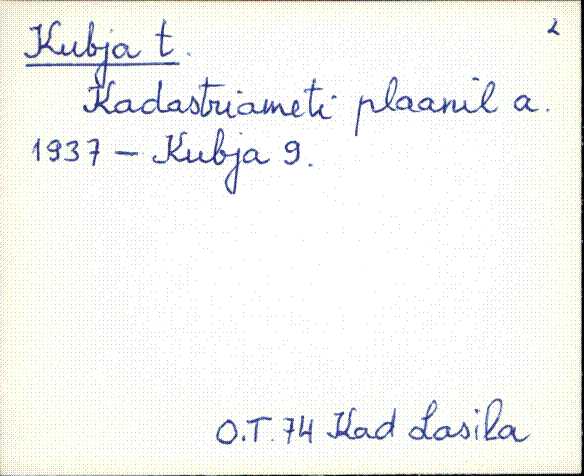 2
Kubja t.
Kadastriameti plaanil a.
1937 – Kubja 9.
O.T. 74 Kad Lasila